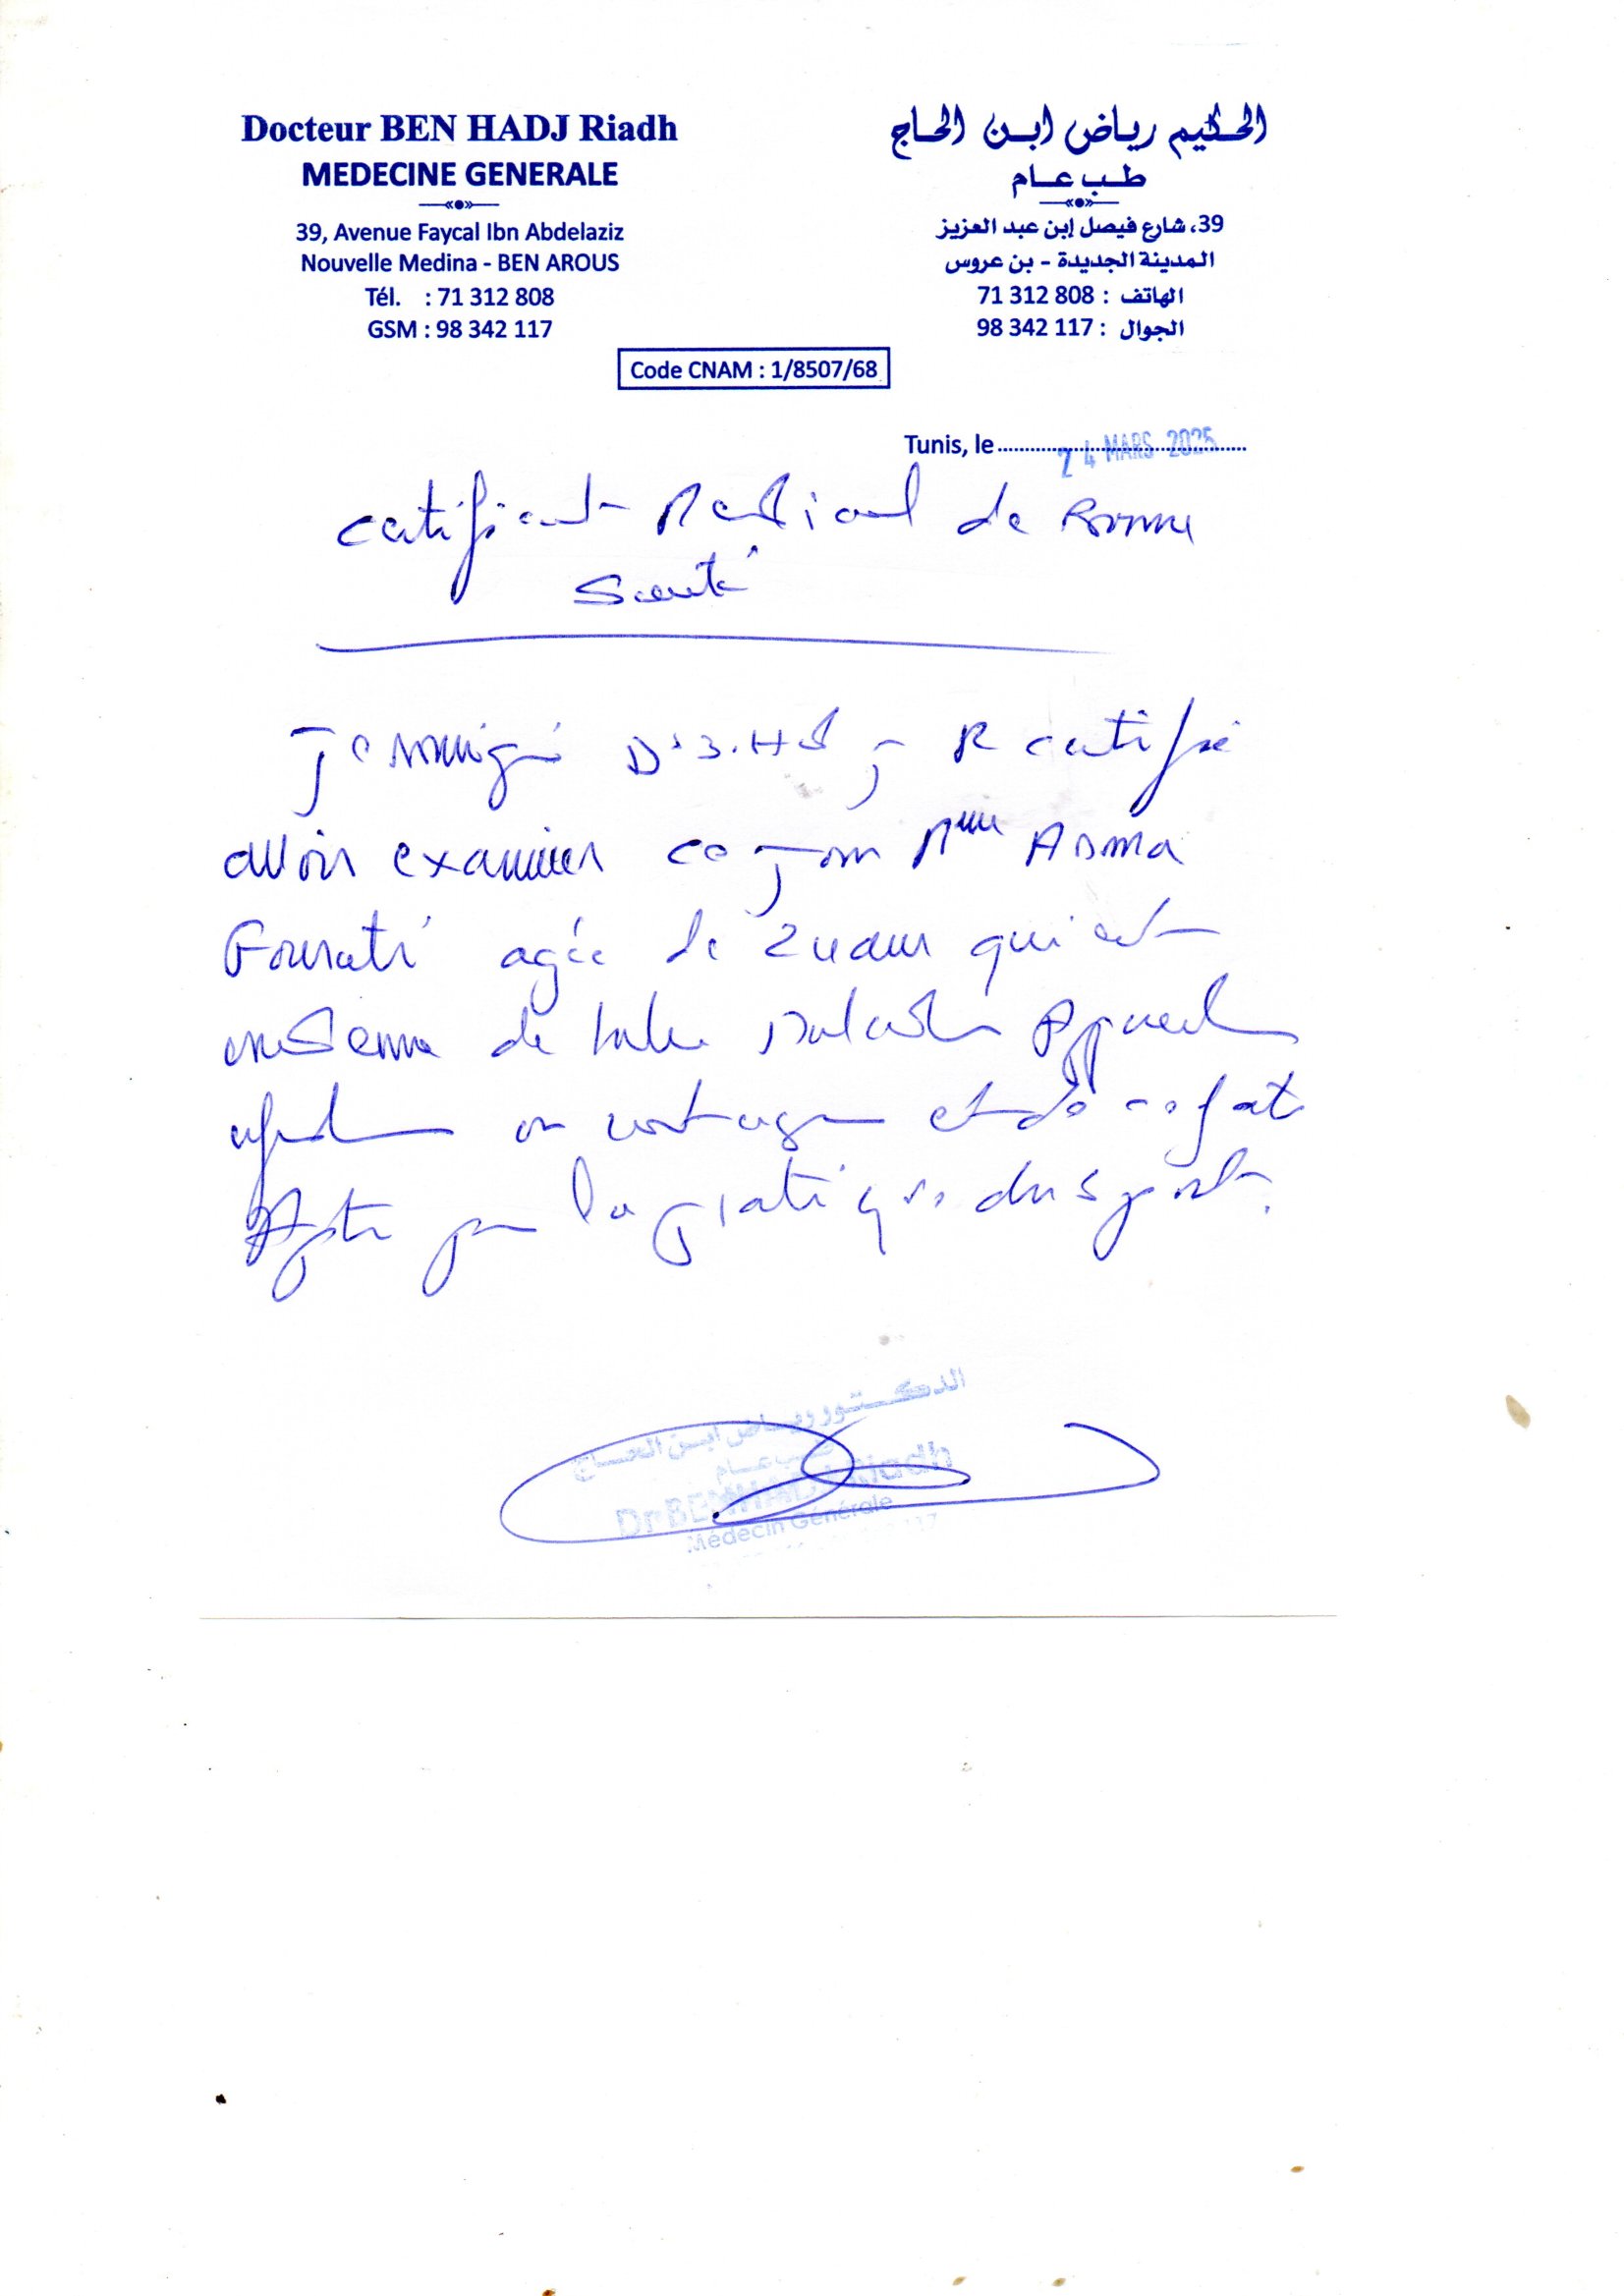 Docteur BEN HADJ Riadh
MEDECINE GENERALE
39, Avenue Faycal Ibn Abdelaziz
Nouvelle Medina - BEN AROUS
Tél. : 71 312 808
GSM : 98 342 117
الحكيم رياض ابن الحاج
طب عام
39، شارع فيصل إبن عبد العزيز
المدينة الجديدة - بن عروس
الهاتف : 71 312 808
الجوال : 98 342 117
Code CNAM : 1/8507/68
Tunis, le 24 MARS 2025
Certificat Medical de Bonne
Santé
Je soussigné Dr B.HDJ R certifie
avoir examiner ce jour Mme Asma
Fourati agée de ans qui est
indemne de toute maladie apparente
ou contagieuse et de ce fait
Apte pour la pratique du sport.
الدكتور رياض ابن الحاج
طب عام
Dr BEN HADJ Riadh
Médecin Générale